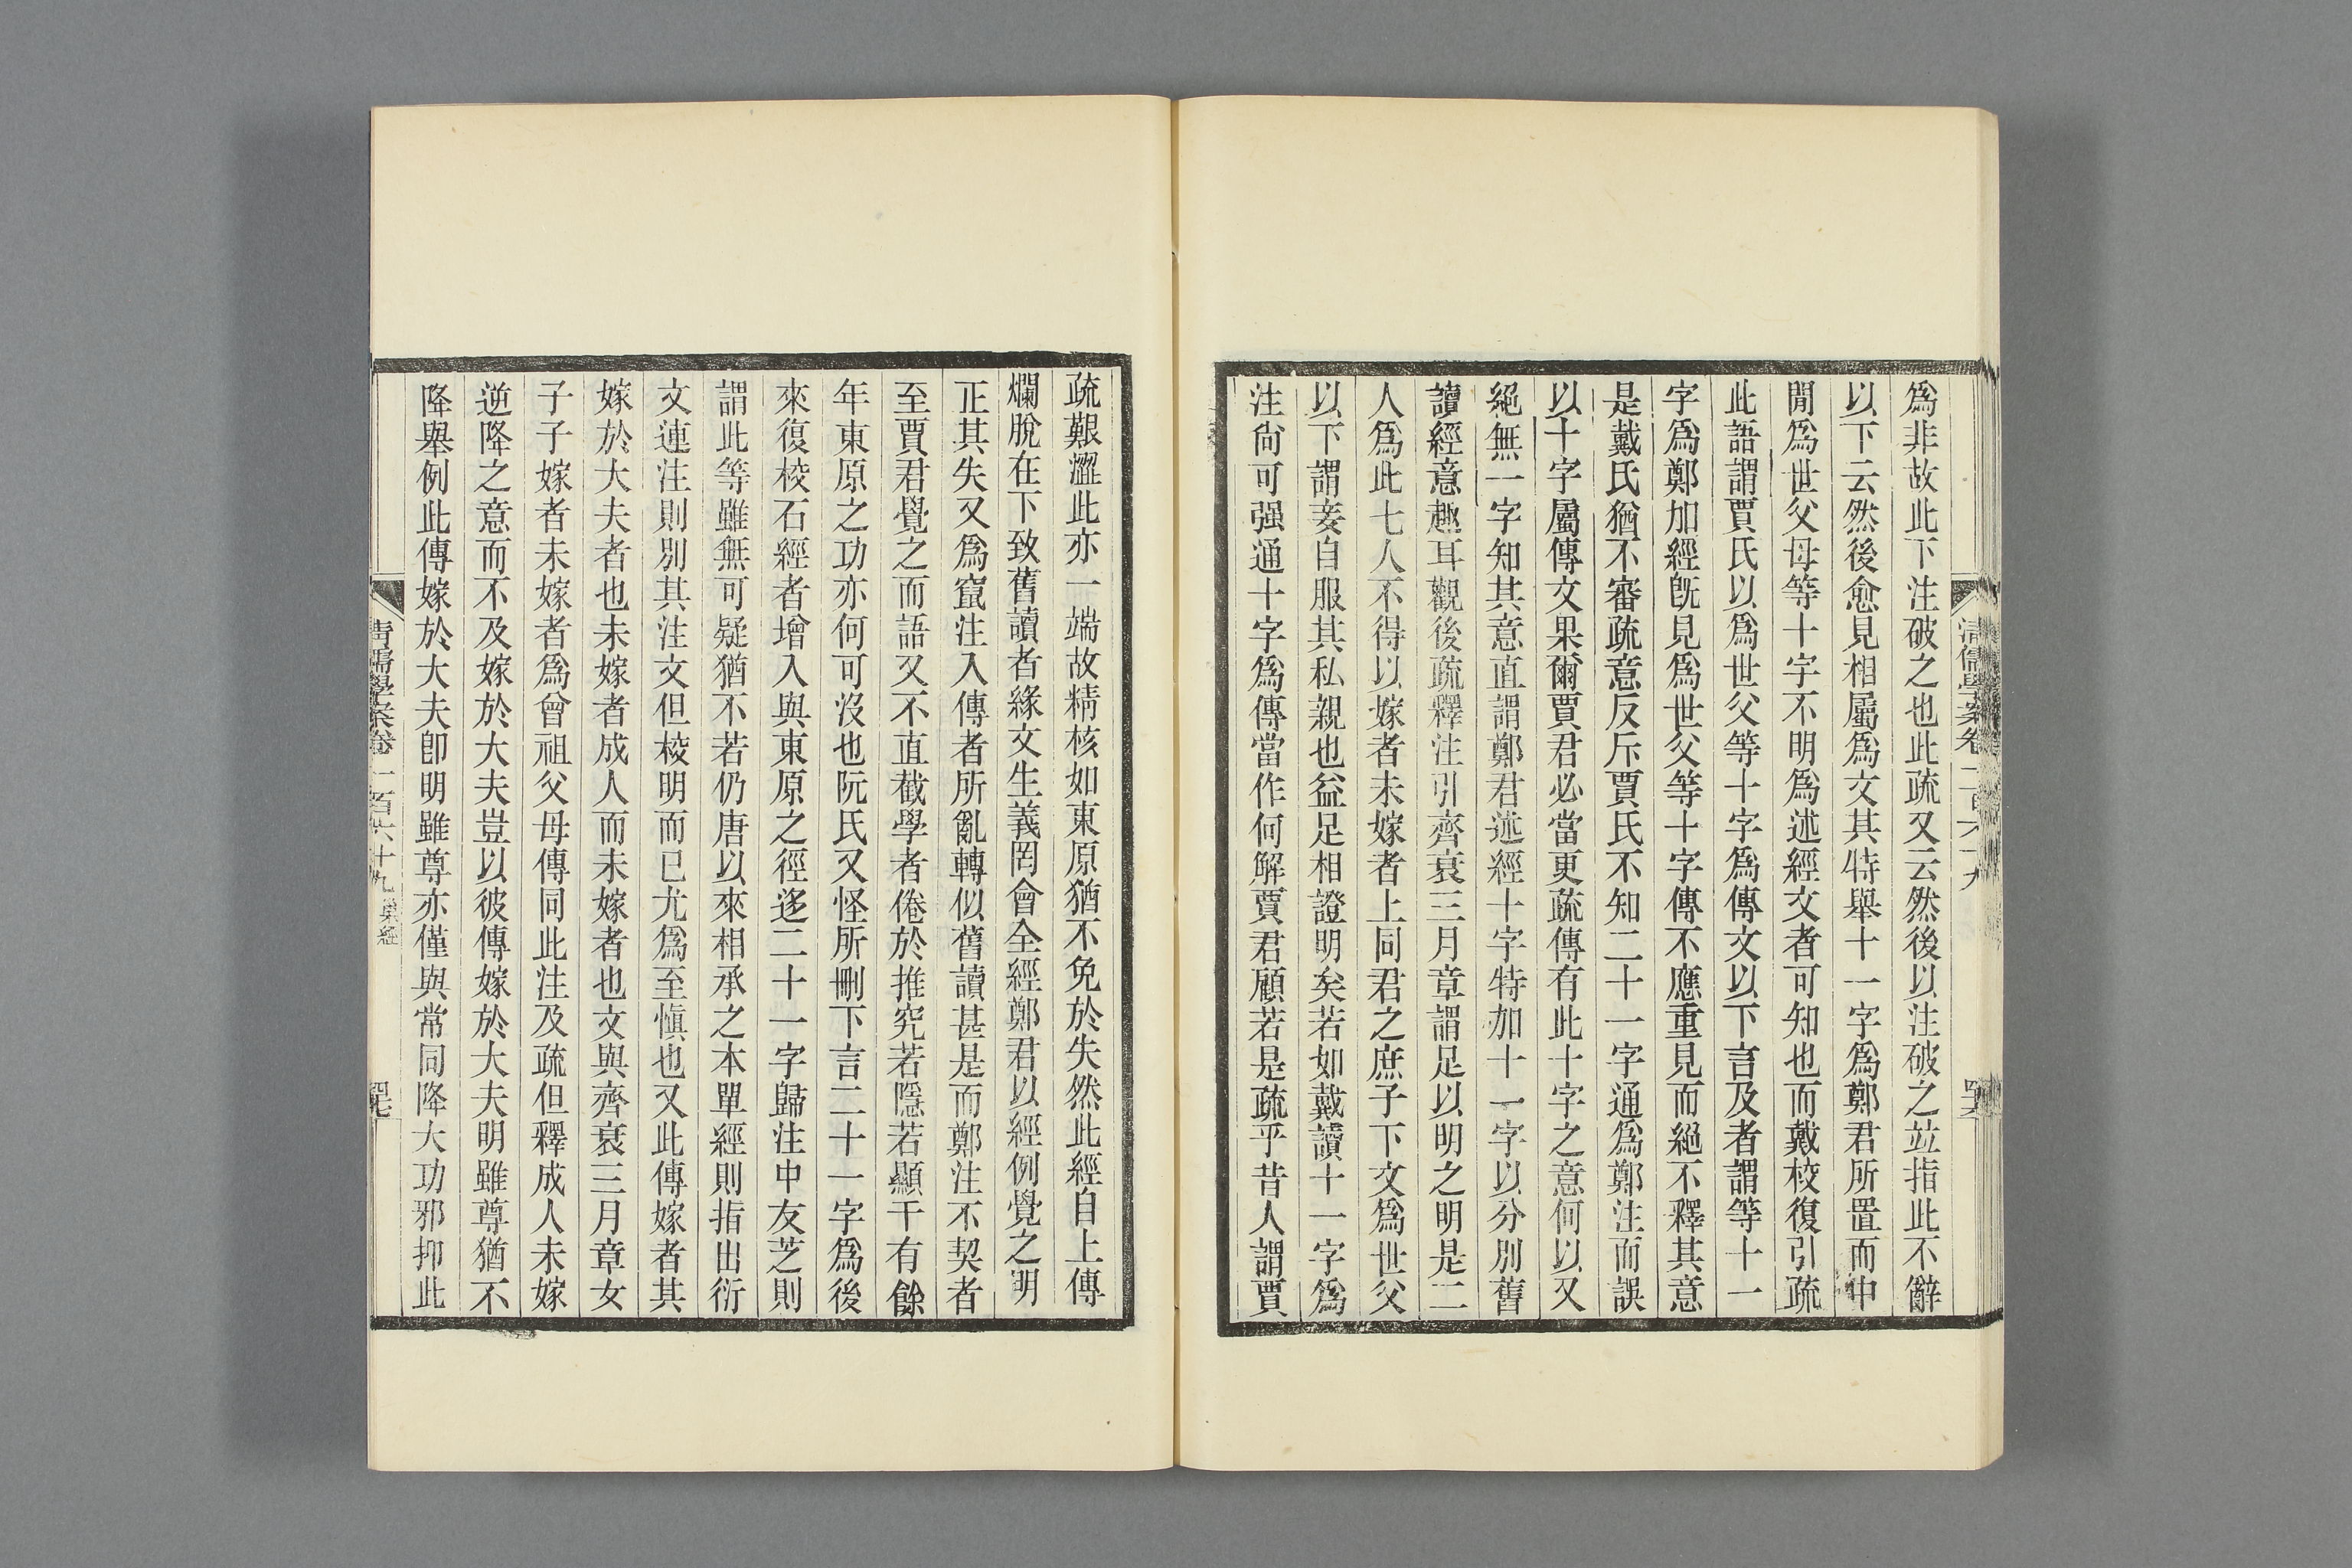 爲非故此下注破之也此疏又云然後以注破之竝指此不辭
以下云然後愈見相屬爲文其特舉十一字爲鄭君所置而中
閒爲世父母等十字不明爲述經文者可知也而戴校復引疏
此語謂賈氏以爲世父等十字爲傳文以下言及者謂等十一
字爲鄭加經旣見爲世父等十字傳不應重見而絕不釋其意
是戴氏猶不審疏意反斥賈氏不知二十一字通爲鄭注而誤
以十字屬傳文果爾賈君必當更疏傳有此十字之意何以又
絕無一字知其意直謂鄭君述經十字特加十一字以分別舊
讀經意趣耳觀後疏釋注引齊衰三月章謂足以明之明是二
人爲此七人不得以嫁者未嫁者上同君之庶子下文爲世父
以下謂妾自服其私親也益足相證明矣若如戴讀十一字爲
注尙可强通十字爲傳當作何解賈君顧若是疏乎昔人謂賈
疏艱澀此亦一端故精核如東原猶不免於失然此經自上傳
爛脫在下致舊讀者緣文生義罔會全經鄭君以經例覺之明
正其失又爲竄注入傳者所亂轉似舊讀甚是而鄭注不契者
至賈君覺之而語又不直截學者倦於推究若隱若顯干有餘
年東原之功亦何可沒也阮氏又怪所刪下言二十一字爲後
來復校石經者增入與東原之徑迻二十一字歸注中友芝則
謂此等雖無可疑猶不若仍唐以來相承之本單經則指出衍
文連注則別其注文但校明而已尤爲至愼也又此傳嫁者其
嫁於大夫者也未嫁者成人而未嫁者也文與齊衰三月章女
子子嫁者未嫁者爲曾祖父母傳同此注及疏但釋成人未嫁
逆降之意而不及嫁於大夫豈以彼傳嫁於大夫明雖尊猶不
降舉例此傳嫁於大夫卽明雖尊亦僅與常同降大功邪抑此
清儒學案卷一百六十九 巢經